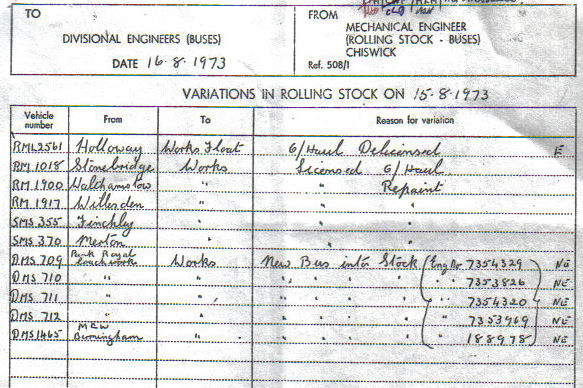 TO
DIVISIONAL ENGINEERS (BUSES)
DATE 16.8.1973
FROM
MECHANICAL ENGINEER
(ROLLING STOCK - BUSES)
CHISWICK
Ref. 508/1
VARIATIONS IN ROLLING STOCK ON 15.8.1973
Vehicle number From To Reason for variation
RML2561 Holloway Works Float O/Haul Delicensed E
RM 1018 Stonebridge Works Licensed O/Haul
RM 1900 Walthamstow " " Repaint
RM 1917 Willesden " " "
SMS 355 Finchley " " "
SMS 370 Merton " " "
DMS 709 Park Royal Coachwork Works New Bus into Stock (Eng No 7354329) NE
DMS 710 " " " " " " " 7353826 NE
DMS 711 " " " " " " " 7354320 NE
DMS 712 " " " " " " " 7353969 NE
DMS1465 MCW Birmingham " " " " " " 188978 NE